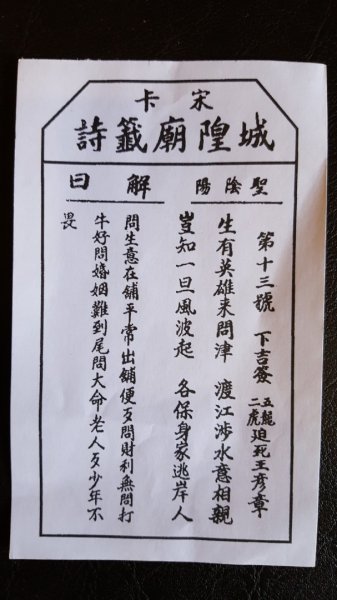 宋卡
城隍廟籤詩
聖陰陽
解曰
第十三號 下吉簽 五龍二虎迫死王彥章
生有英雄来問津 渡江涉水意相親
豈知一旦風波起 各保身家逃岸人
問生意在舖平常出舖便歹問財利無問打
牛好問婚姻難到尾問大命老人歹少年不
畏